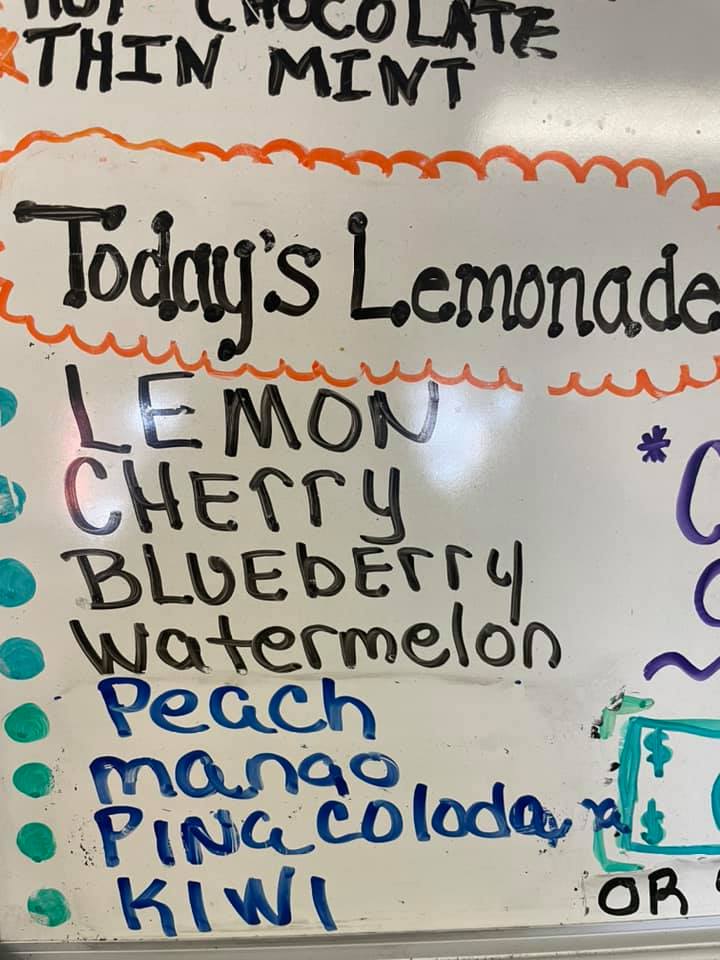 HOT CHOCOLATE
THIN MINT
Today's Lemonade
LEMON
CHErry
BLUEbErry
Watermelon
Peach
mango
PINa coloda
KIWI
$
$
OR